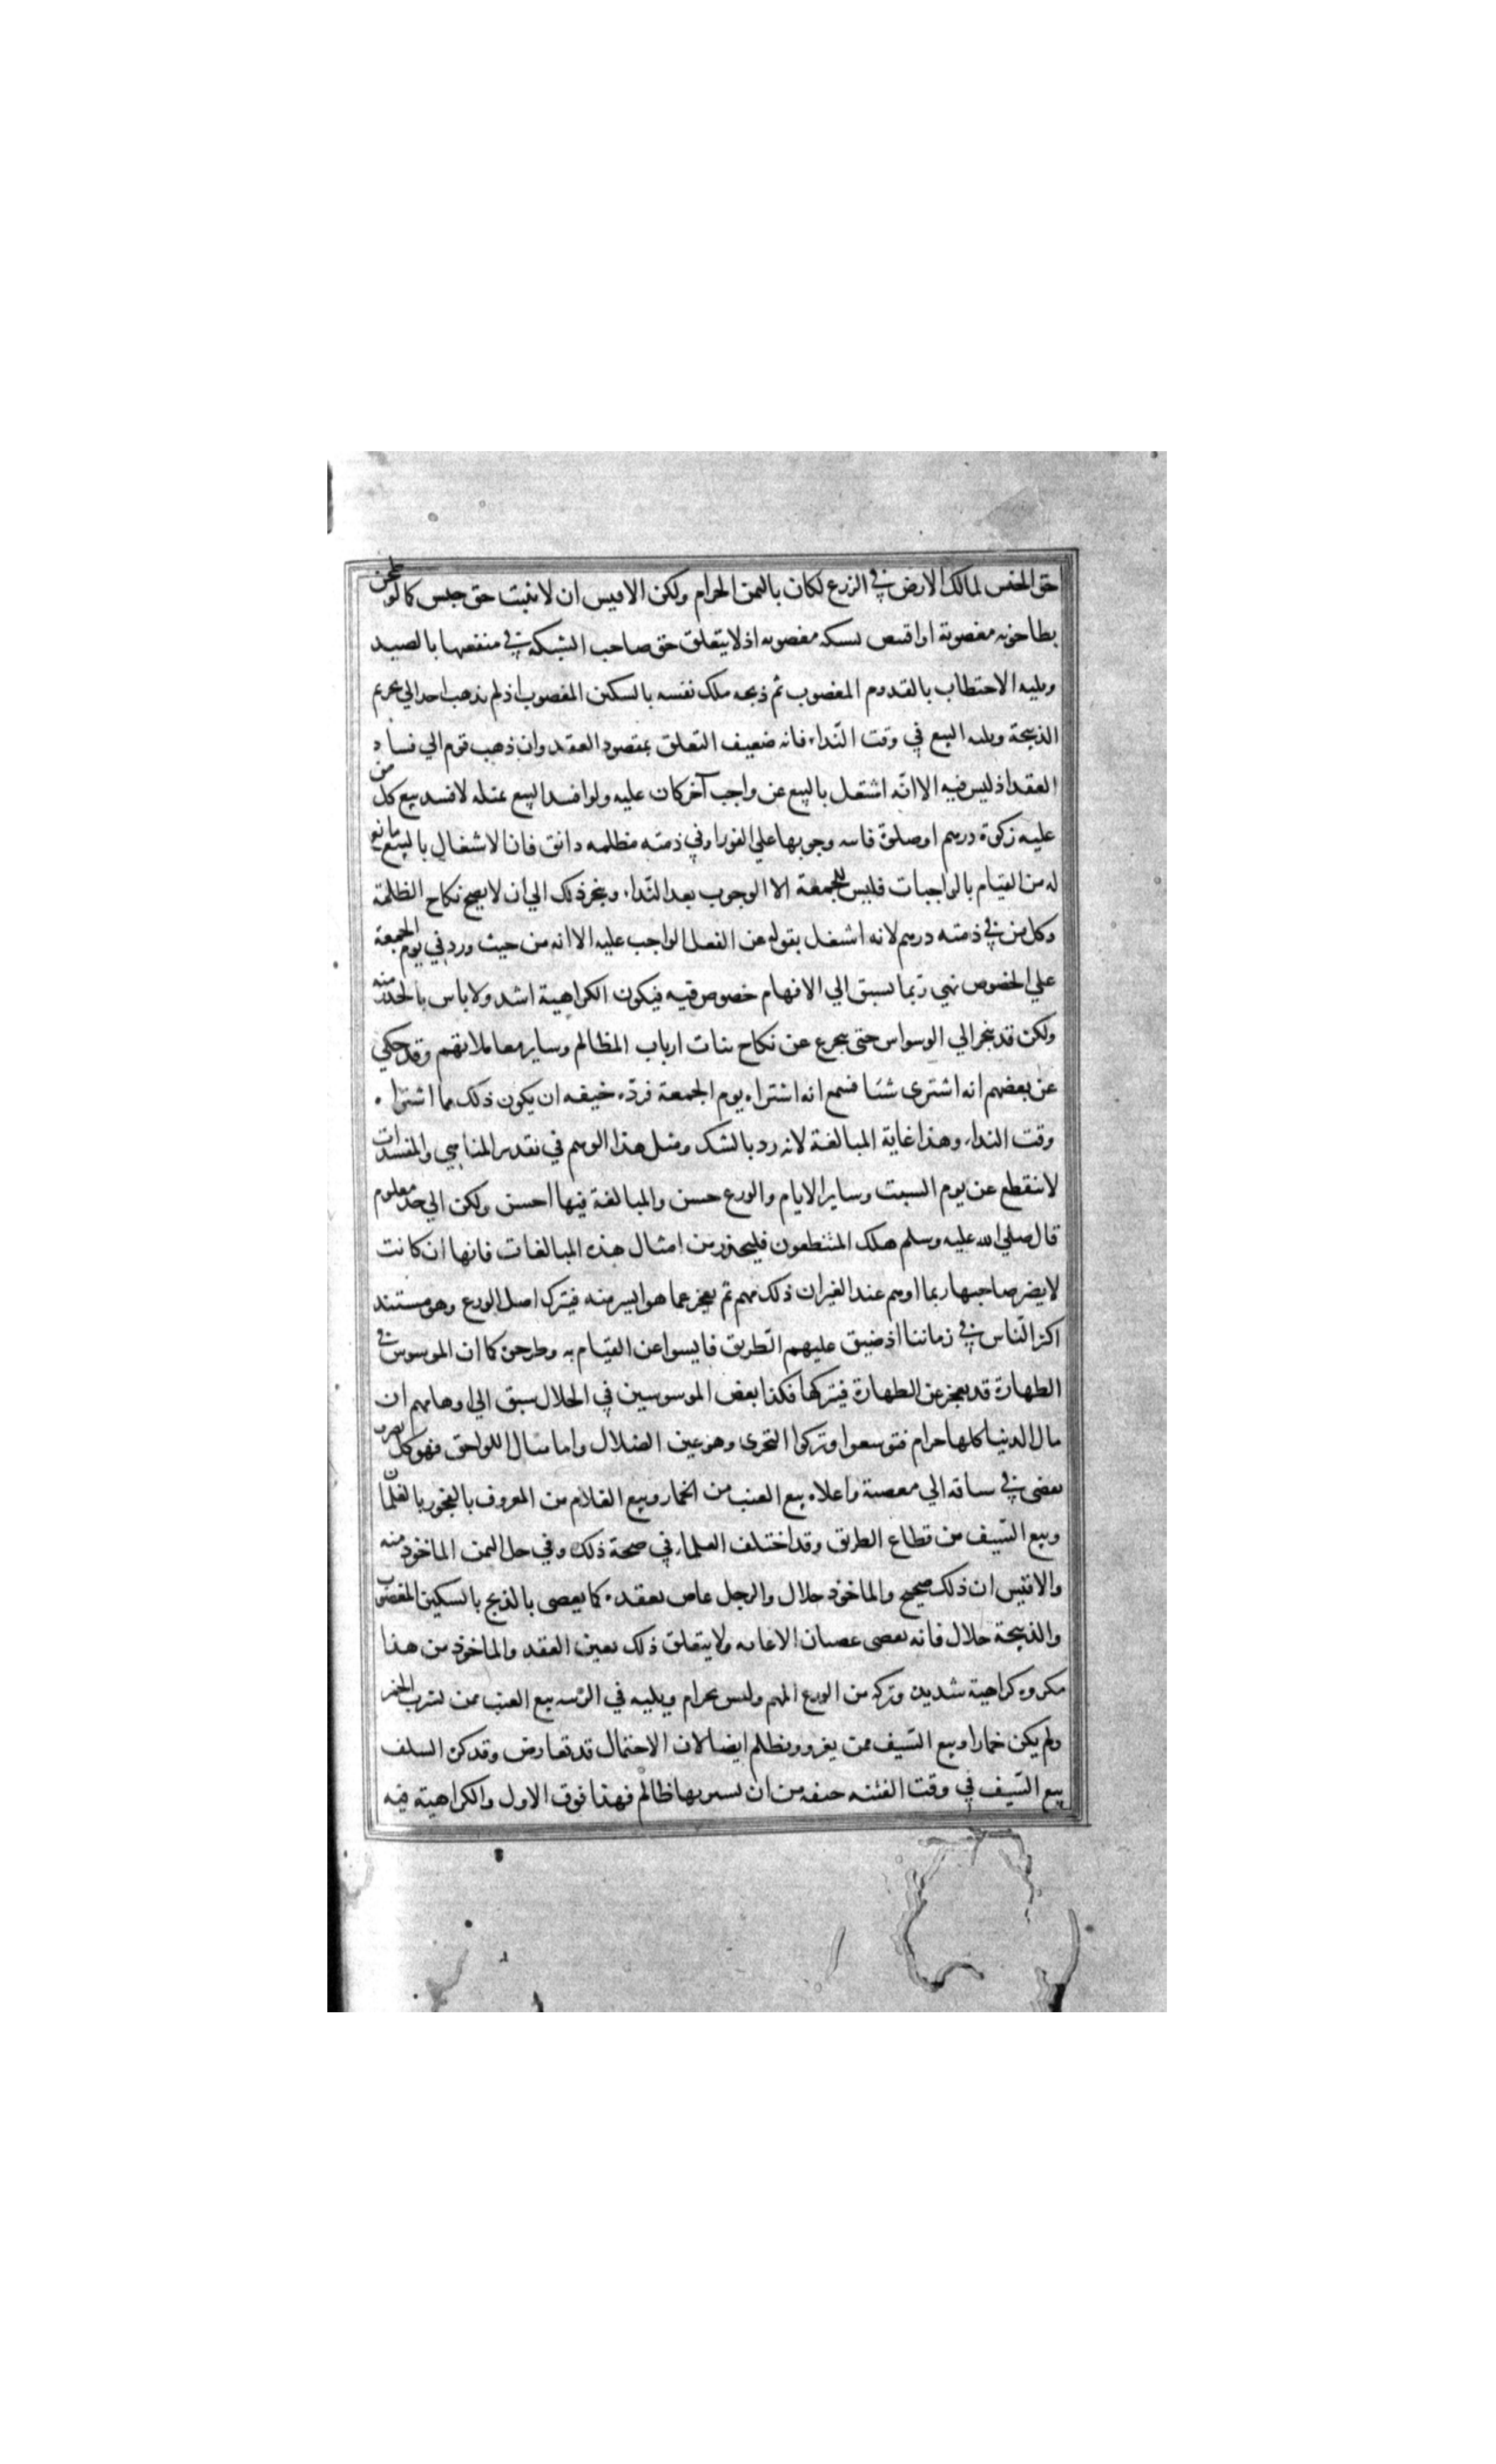 حق الحبس لمالك الارض في الزرع لكان بالثمن الحرام ولكن الاقيس ان لا يثبت حق حبس كما لو طحن
بطاحونه مغصوبة او اقتنص بشبكه مغصوبه اذ لا يتعلق حق صاحب الشبكه في منفعتها بالصيد
ويليه الاحتطاب بالقدوم المغصوب ثم ذبحه ملك نفسه بالسكين المغصوب اذ لم يذهب احد الي تحريم
الذبيحة ويليه البيع في وقت النّداء فانه ضعيف التعلق بمقصود العقد وان ذهب قوم الي فساد
العقد اذ ليس فيه الا انّه اشتغل بالبيع عن واجب آخر كان عليه ولو افسد البيع بمثله لافسد بيع كل من
عليه زكوة درهم او صلوة فايته وجوبها علي الفور او في ذمته مظلمه دانق فان الاشغال بالبيع مانع
له من القيام بالواجبات فليس للجمعة الا الوجوب بعد النّداء وينجر ذلك الي ان لا يصح نكاح الظلمة
وكل من في ذمته درهم لانه اشتغل بقوله عن الفعل الواجب عليه الا انه من حيث ورد في يوم الجمعة
علي الخصوص نهي ربّما سبق الي الافهام خصوص فيه فيكون الكراهية اشد ولا باس بالحذر منه
ولكن قد ينجر الي الوسواس حتي يتحرج عن نكاح بنات ارباب المظالم وساير معاملاتهم وقد حكي
عن بعضهم انه اشتري شئا فسمع انه اشتراه يوم الجمعة فردّه خيفه ان يكون ذلك مما اشتراه
وقت النداء وهذا غاية المبالغة لانه رد بالشك ومثل هذا الوهم في تقدير المناهي والمفسدات
لا ينقطع عن يوم السبت وساير الايام والورع حسن والمبالغة فيها احسن ولكن الي حد معلوم
قال صلي الله عليه وسلم هلك المتنطعون فليحذر من امثال هذه المبالغات فانها ان كانت
لا يضر صاحبها ربما اوهم عند الغير ان ذلك مهم ثم يعجز عما هو ايسر منه فيترك اصل الورع وهو مستند
اكثر النّاس في زماننا اذ ضيق عليهم الطّريق فايسوا عن القيام به وطرحن كما ان الموسوس في
الطهارة قد يعجز عن الطهارة فيتركها فكذا بعض الموسوسين في الحلال سبق الي اوهامهم ان
مال الدنيا كلها حرام فتوسعوا وتركوا التحري وهو عين الضلال واما مثال اللواحق فهو كل تصرف
يفضي في سياقه الي معصية واعلاه بيع العنب من الخمار وبيع الغلام من المعروف بالفجور بالغلمان
وبيع السّيف من قطاع الطريق وقد اختلف العلماء في صحة ذلك وفي حل الثمن الماخوذ منه
والاقيس ان ذلك صحيح والماخوذ حلال والرجل عاص بعقده كما يعصي بالذبح بالسكين المغصوب
والذبيحة حلال فانه يعصي عصيان الاعانه ولا يتعلق ذلك بعين العقد والماخوذ من هذا
مكروه كراهية شديدة وتركه من الورع المهم وليس بحرام ويليه في الرتبه بيع العنب ممن يشرب الخمر
ولم يكن خمارا وبيع السّيف ممن يغزو ويظلم ايضا لان الاحتمال قد تعارض وقد كره السلف
بيع السّيف في وقت الفتنه خيفه من ان يشتريها ظالم فهذا فوق الاول والكراهية فيه